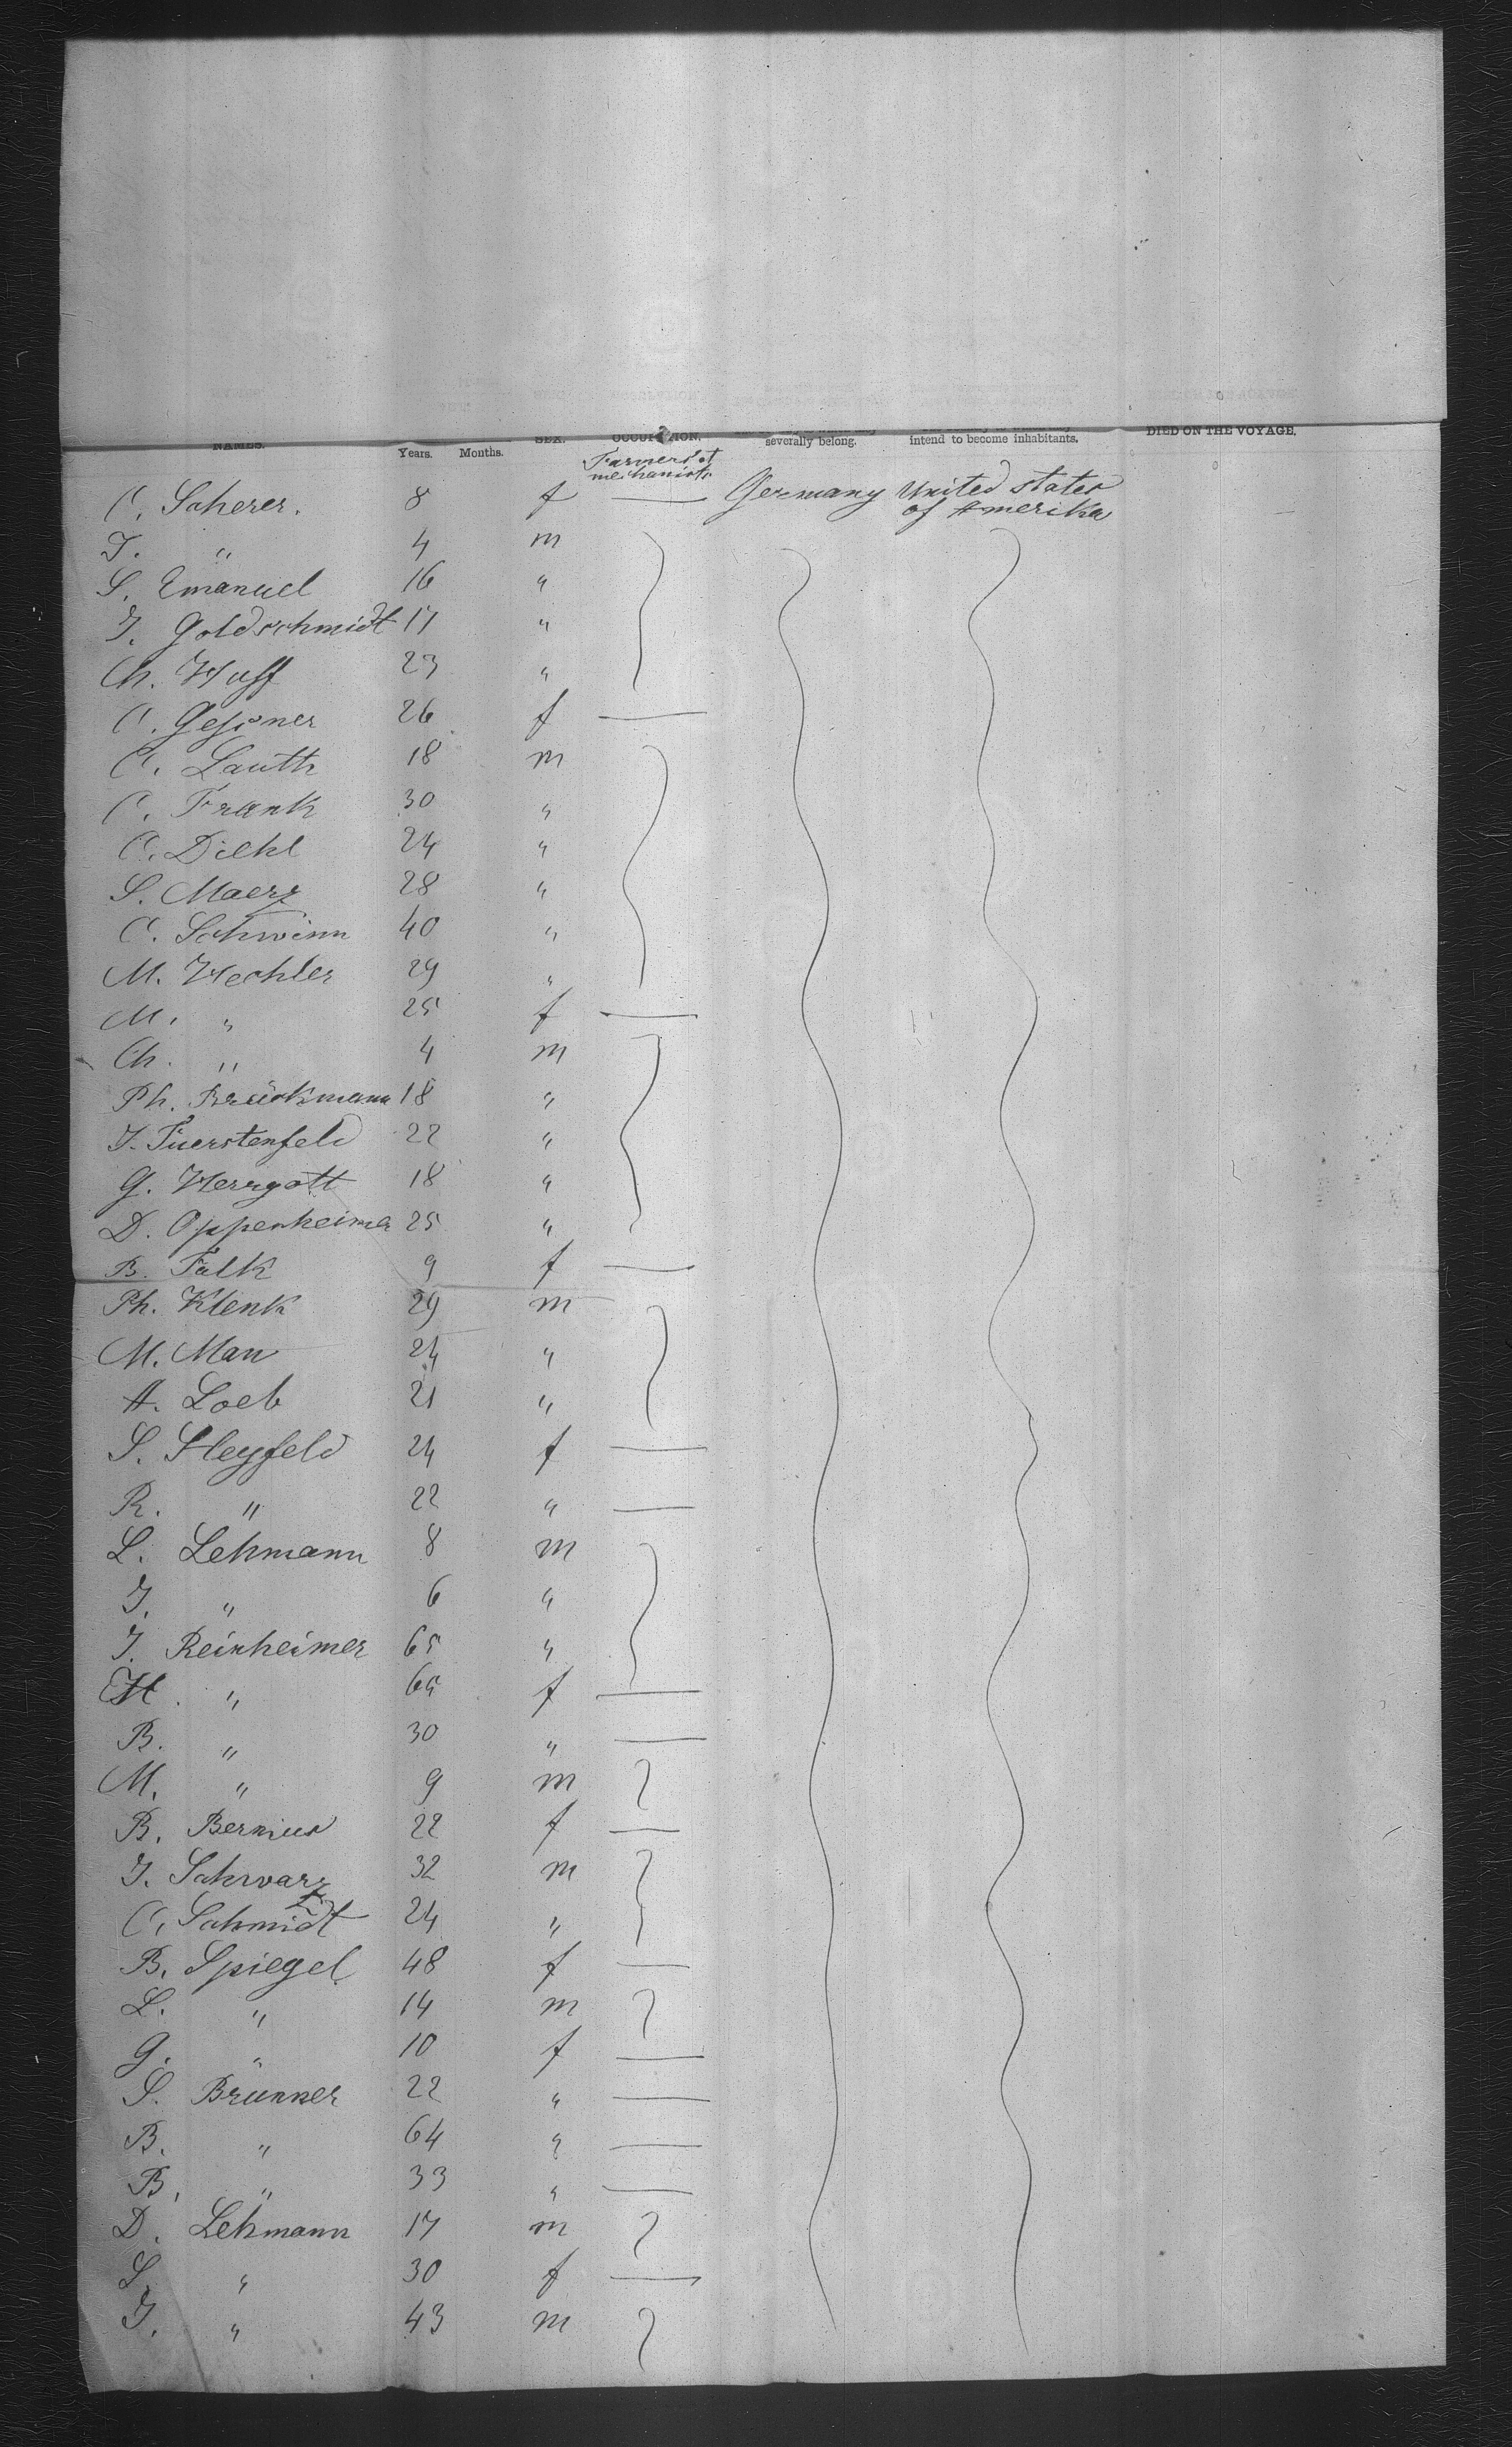 NAMES. Years. Months. SEX. OCCUPATION. severally belong. intend to become inhabitants. DIED ON THE VOYAGE.
Farmers et
mechanists
C. Scherer. 8 f — Germany United States
of Amerika
J. " 4 m
S. Emanuel 16 "
J. Goldschmidt 17 "
Ch. Huff 23 "
C. Gessner 26 f —
C. Lauth 18 m
C. Frank 30 "
C. Diehl 24 "
S. Maerz 28 "
C. Schwinn 40 "
M. Hechler 29 "
M. " 25 f —
Ch. " 4 m
Ph. Brückmann 18 "
J. Fuerstenfeld 22 "
G. Herrgott 18 "
D. Oppenheimer 25 "
B. Falk 9 f —
Ph. Klenk 29 m
M. Man 24 "
A. Loeb 21 "
S. Heyfeld 24 f —
R. " 22 " —
L. Lehmann 8 m
J. " 6 "
J. Reinheimer 65 "
H. " 65 f —
B. " 30 " —
M. " 9 m
B. Bernius 22 f —
J. Schwarz 32 m
C. Schmidt 24 "
B. Spiegel 48 f —
L. " 14 m
G. " 10 f —
S. Brunner 22 " —
B. " 64 " —
B. " 33 " —
D. Lehmann 17 m
S. " 30 f —
J. " 43 m